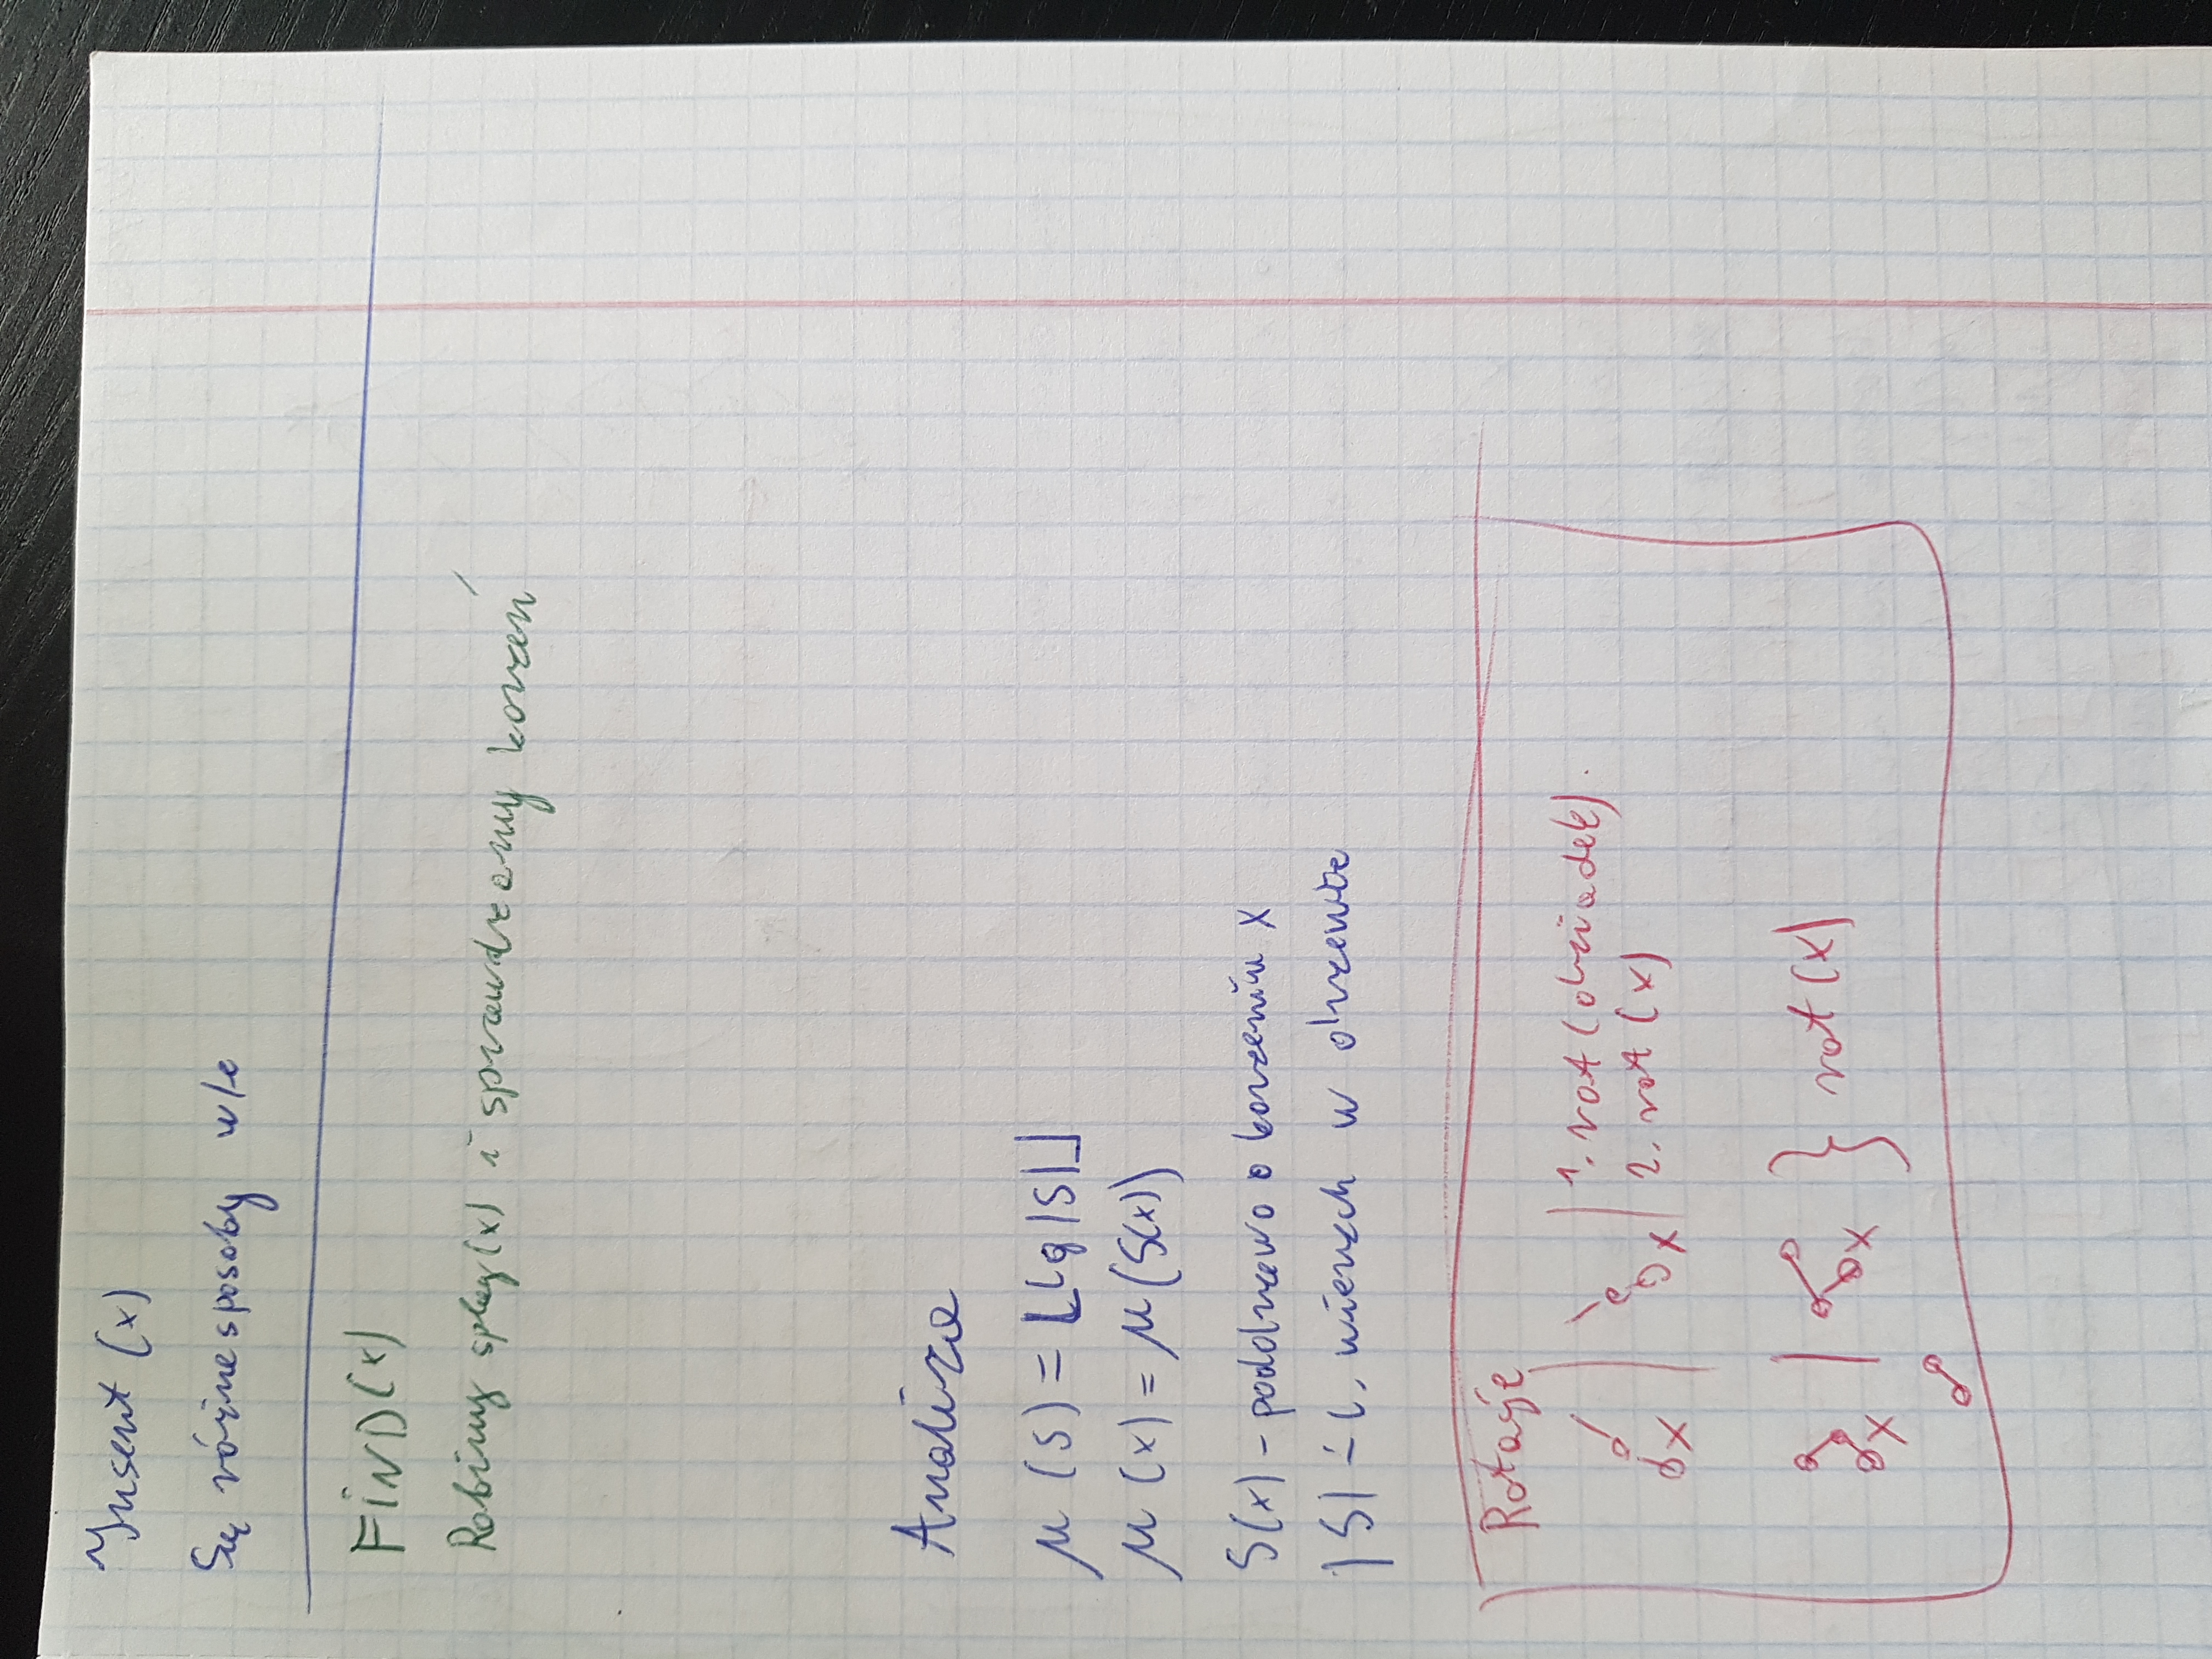 Insert (x)
Są różne sposoby w/e
FIND(x)
Robimy splay(x) i sprawdzamy korzeń
Analiza
μ (S) = ⌊lg|S|⌋
μ (x) = μ(S(x))
S(x) - poddrzewo o korzeniu x
|S| - l. wierzch w drzewie
Rotacje
1. rot (dziadek).
x | x | 2. rot (x)
x | x } rot (x)